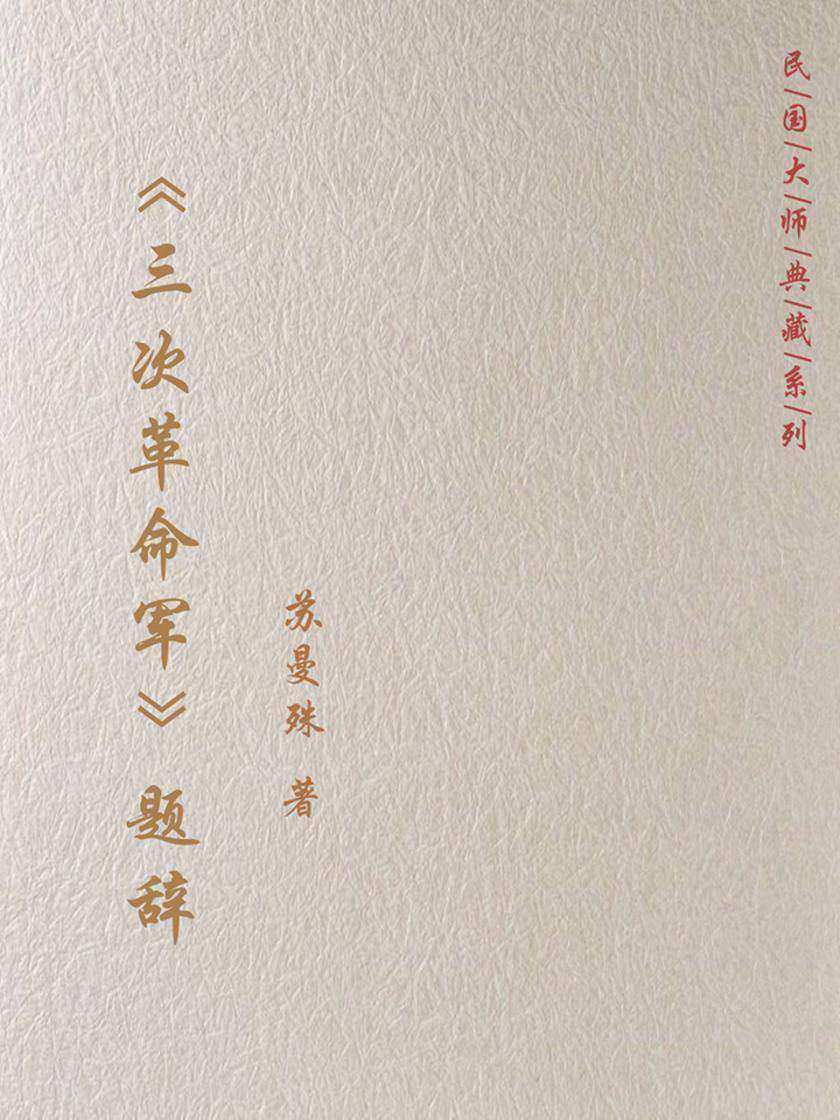 民国大师典藏系列
《三次革命军》题辞
苏曼殊 著